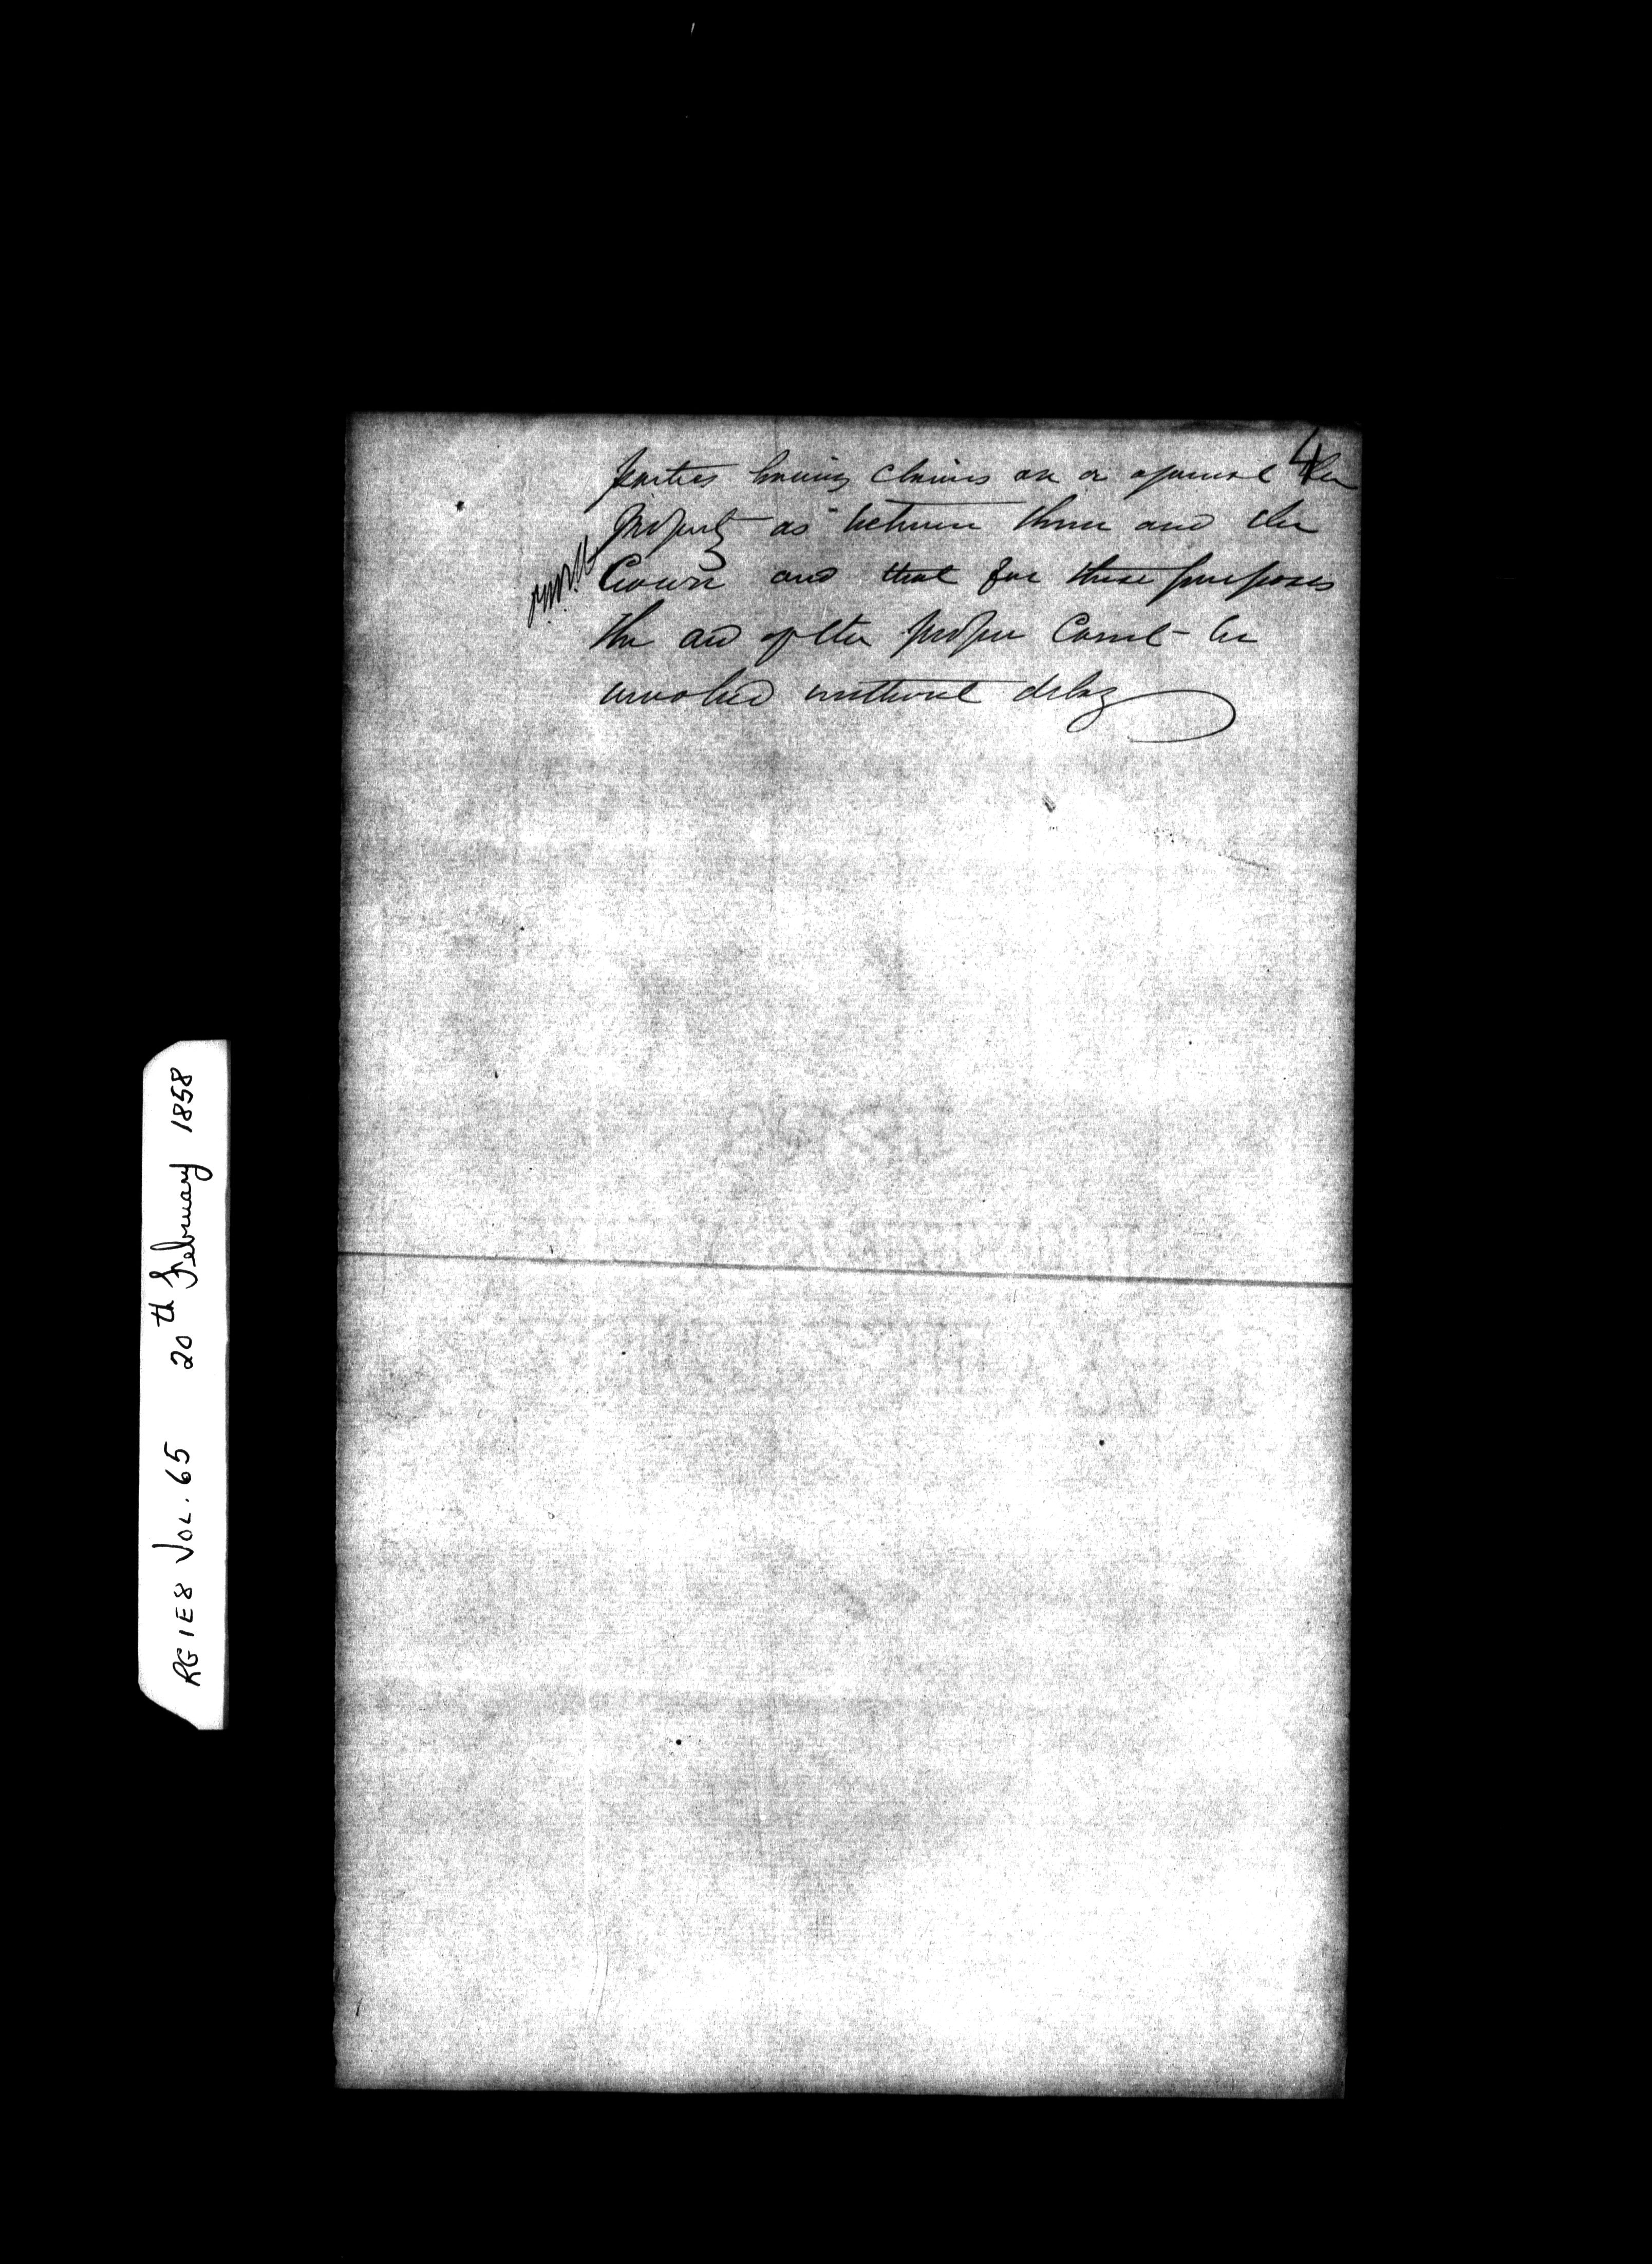 4
parties having claims on or against the
Property as between them and the
Crown and that for these purposes
the aid of the proper Court be
invoked without delay
RG1E8 VOL. 65 20th February 1858